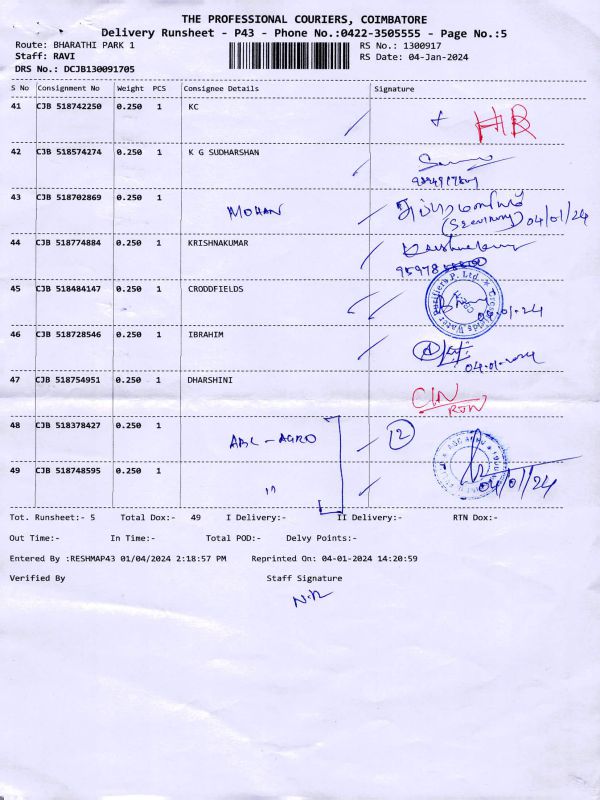 THE PROFESSIONAL COURIERS, COIMBATORE
Delivery Runsheet - P43 - Phone No.:0422-3505555 - Page No.:5
Route: BHARATHI PARK 1 RS No.: 1300917
Staff: RAVI RS Date: 04-Jan-2024
DRS No.: DCJB130091705
S No Consignment No Weight PCS Consignee Details Signature
41 CJB 518742250 0.250 1 KC
42 CJB 518574274 0.250 1 K G SUDHARSHAN
43 CJB 518702869 0.250 1 MOHAN
04/01/24
44 CJB 518774884 0.250 1 KRISHNAKUMAR
45 CJB 518484147 0.250 1 CRODDFIELDS
46 CJB 518728546 0.250 1 IBRAHIM
04-01-2024
47 CJB 518754951 0.250 1 DHARSHINI
48 CJB 518378427 0.250 1 ABL-AGRO 2
49 CJB 518748595 0.250 1 "
04/01/24
Tot. Runsheet:- 5 Total Dox:- 49 I Delivery:- II Delivery:- RTN Dox:-
Out Time:- In Time:- Total POD:- Delvy Points:-
Entered By :RESHMAP43 01/04/2024 2:18:57 PM Reprinted On: 04-01-2024 14:20:59
Verified By Staff Signature